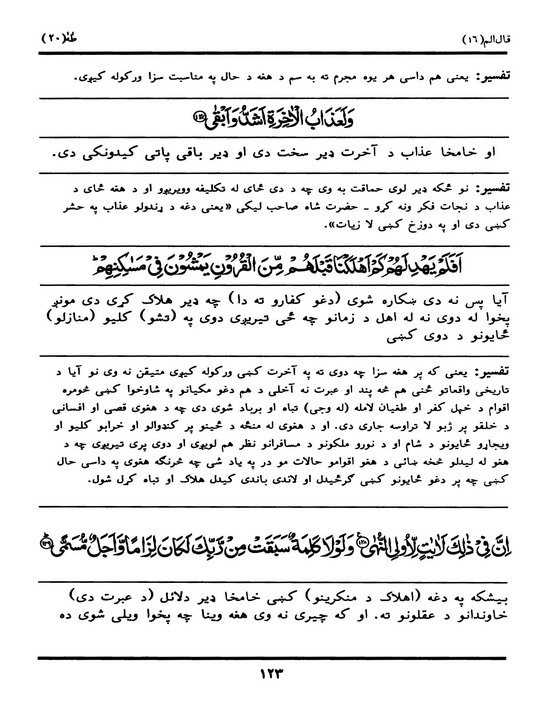 قال الم(۱۶) طٰهٰ(۲۰)
تفسیر: یعنی هم داسې هر یوه مجرم ته به سم د هغه د حال په مناسبت سزا ورکوله کیږي.
وَلَعَذَابُ الْاٰخِرَةِ اَشَدُّ وَاَبْقٰی ﴿۱۲۷﴾
او خامخا عذاب د آخرت ډیر سخت دی او ډیر باقی پاتې کیدونکی دی.
تفسیر: نو ځکه ډیر لوی حماقت به وي چه د دې ځای له تکلیفه وویریږو او د هغه ځای د
عذاب د نجات فکر ونه کړو ـ حضرت شاه صاحب لیکي «یعنې دغه د ړندولو عذاب په حشر
کښې دی او په دوزخ کښې لا زیات».
اَفَلَمْ یَهْدِ لَهُمْ كَمْ اَهْلَكْنَا قَبْلَهُمْ مِّنَ الْقُرُوْنِ یَمْشُوْنَ فِیْ مَسٰكِنِهِمْ ؕ
آیا پس نه دی ښکاره شوی (دغو کفارو ته دا) چه ډیر هلاک کړي دي مونږ
پخوا له دوی نه له اهل د زمانو چه ځي تیریږي دوی په (تشو) کلیو (منازلو)
ځایونو د دوی کښې
تفسیر: یعنې که پر هغه سزا چه دوی ته په آخرت کښې ورکوله کیږي متیقن نه وي نو آیا د
تاریخي واقعاتو ځنې هم څه پند او عبرت نه اخلي د هم دغو مکیانو په شاوخوا کښې څومره
اقوام د خپل کفر او طغیان لامله (له وجې) تباه او برباد شوي دي چه د هغوی قصې او افسانې
د خلقو پر ژبو لا تراوسه جاري دي. او د هغوی له منځه د ځینو پر کنډوالو او خرابو کلیو او
ویجاړو ځایونو د شام او د نورو ملکونو د مسافرانو نظر هم لویږي او دوی پرې تیریږي چه د
هغو له لیدلو څخه ښائي د هغو اقوامو حالات مو در په یاد شي چه څرنګه هغوی په داسې حال
کښې چه پر دغو ځایونو کښې ګرځیدل او لاندې باندې کیدل هلاک او تباه کړل شول.
اِنَّ فِیْ ذٰلِكَ لَاٰیٰتٍ لِّاُولِی النُّهٰی ﴿۱۲۸﴾ وَلَوْلَا كَلِمَةٌ سَبَقَتْ مِنْ رَّبِّكَ لَكَانَ لِزَامًا وَّاَجَلٌ مُّسَمًّی ﴿۱۲۹﴾
بیشکه په دغه (اهلاک د منکرینو) کښې خامخا ډیر دلائل (د عبرت دي)
خاوندانو د عقلونو ته. او که چیرې نه وی هغه وینا چه پخوا ویلې شوې ده
۱۲۳